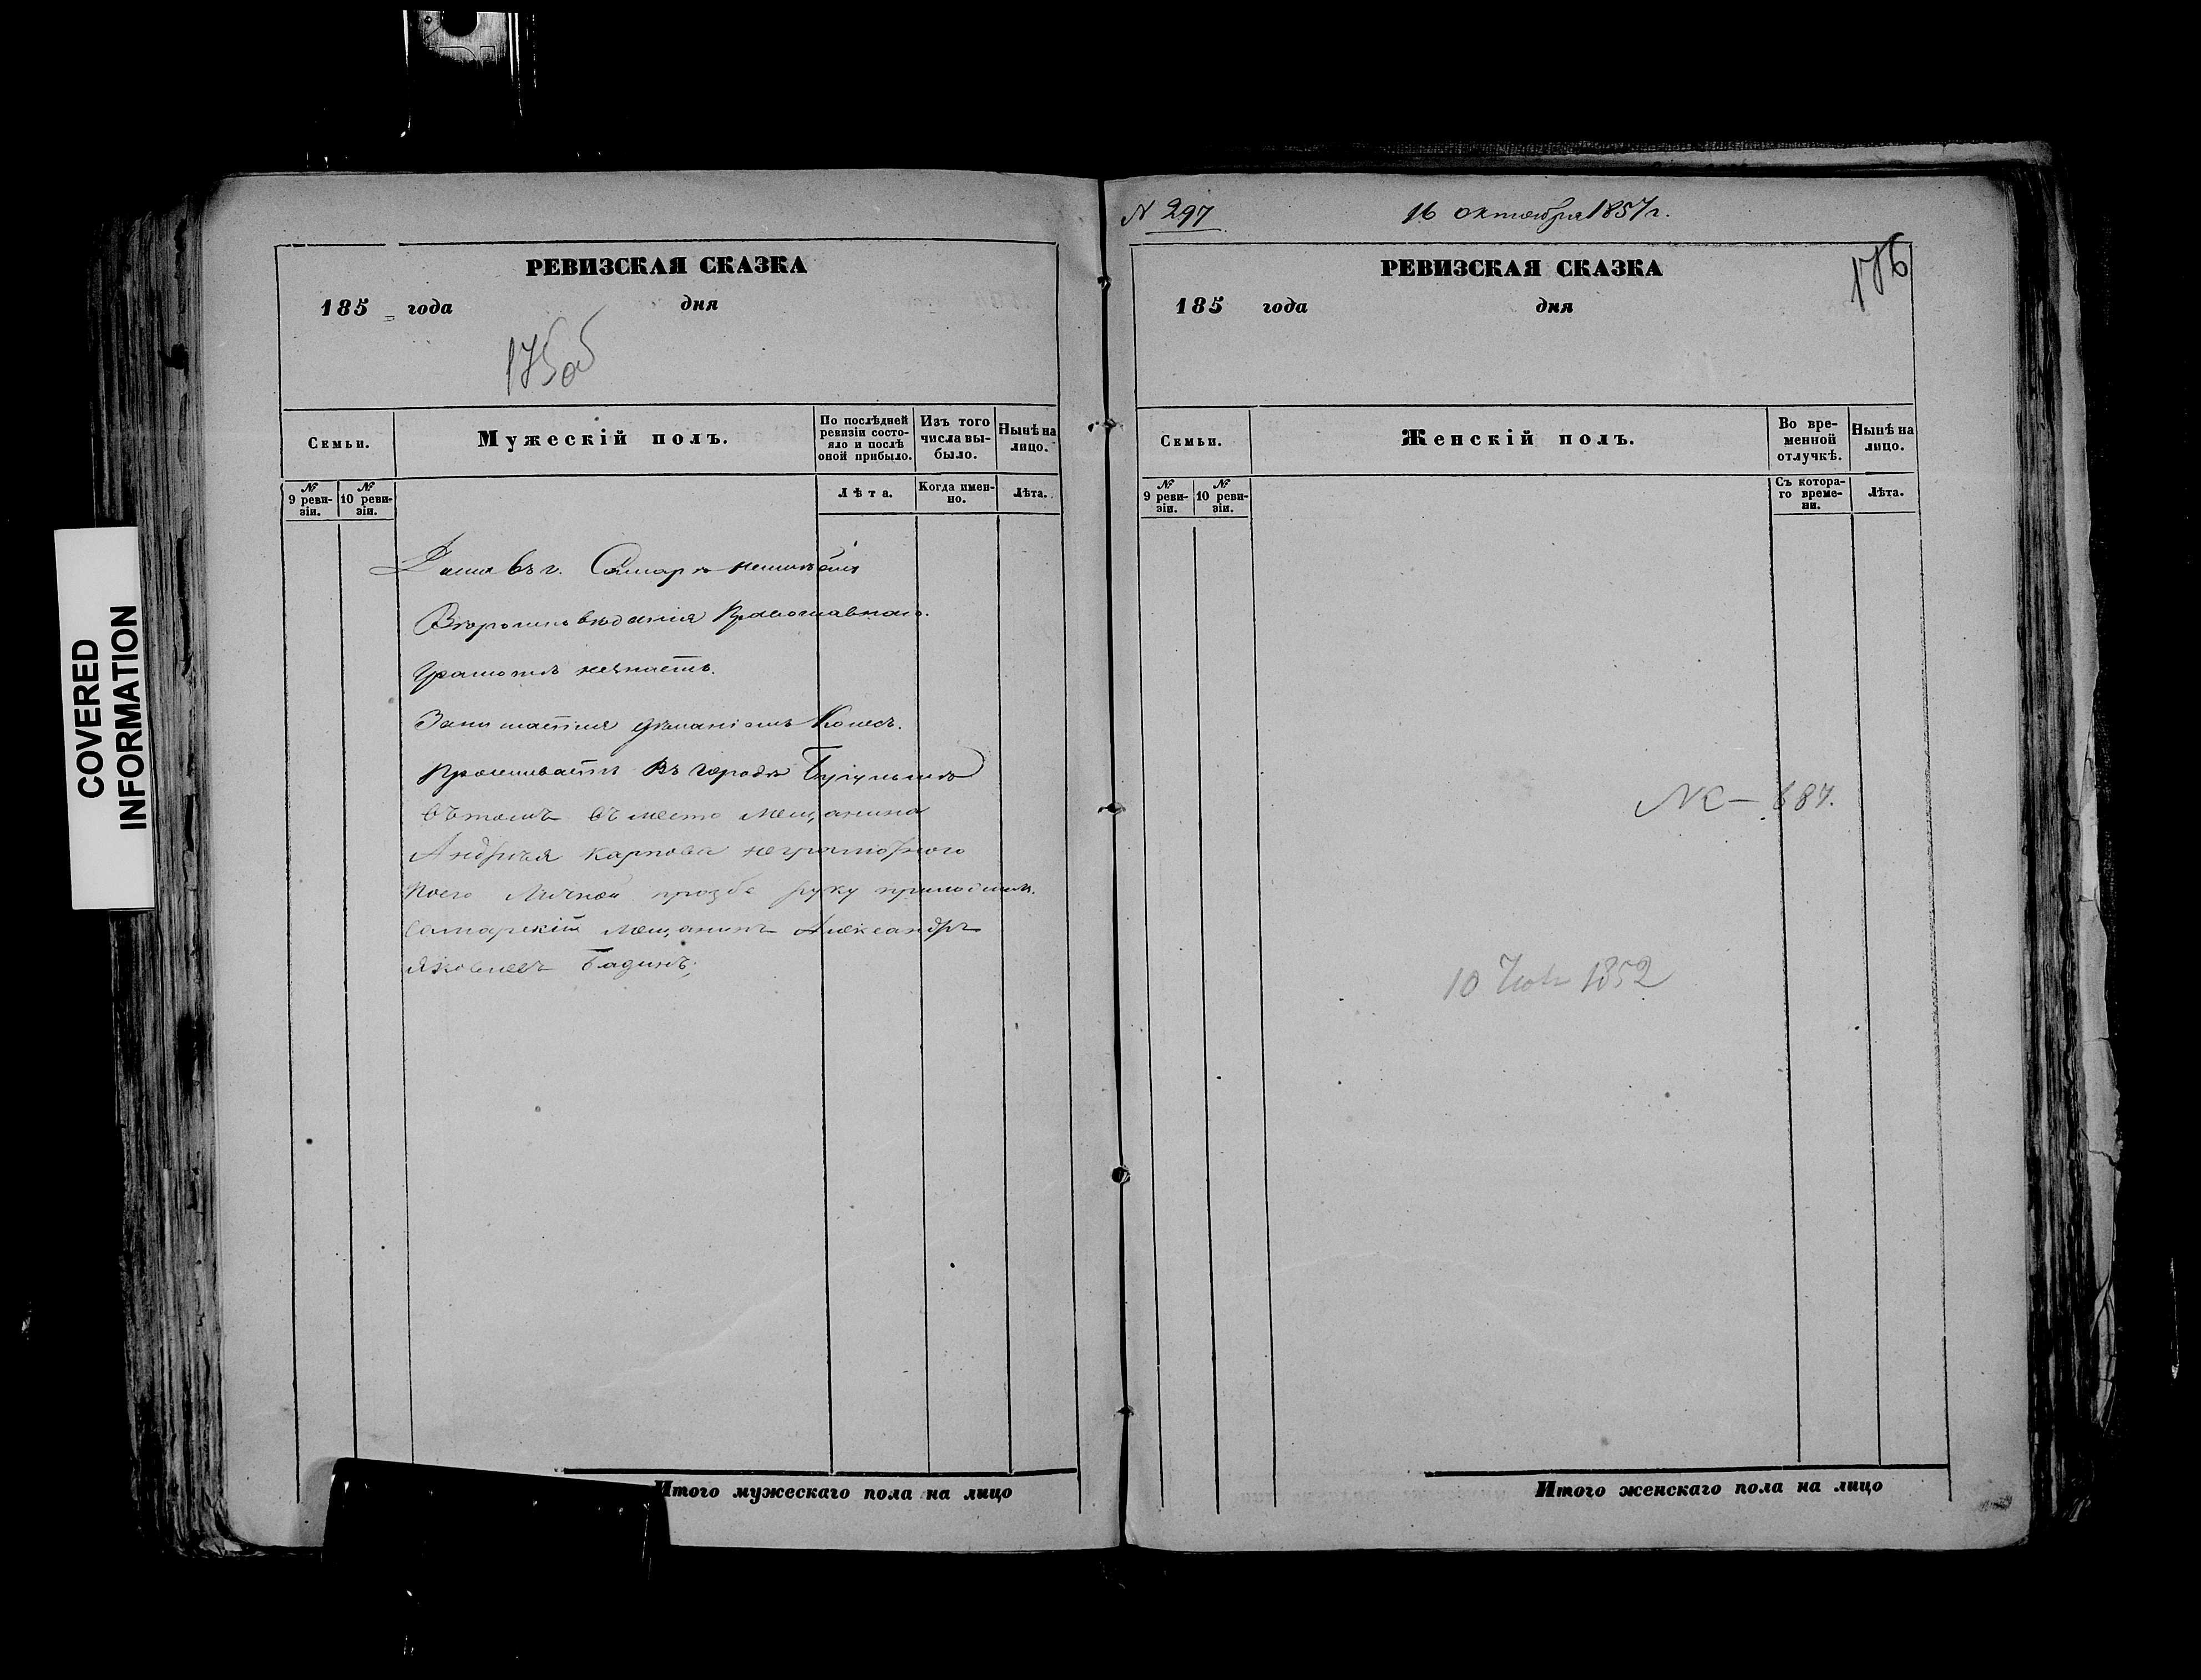 COVERED
INFORMATION
РЕВИЗСКАЯ СКАЗКА
185 года дня
175об
Семьи.
Мужескій полъ.
По послѣдней ревизіи состояло и послѣ оной прибыло.
Изъ того числа выбыло.
Нынѣ на лицо.
№ 9 ревизіи.
№ 10 ревизіи.
Лѣта.
Когда именно.
Лѣта.
Дома въ г. Самарѣ неимѣетъ
Вѣроисповѣданія Православнаго.
Грамотѣ незнаетъ.
Занимается дѣланіемъ Колесъ.
Проживаетъ въ городѣ Бугульмѣ
вѣтомъ въместо мещанина
Андрѣя карпова неграмотного
поего Личной прозбе руку приложилъ.
Самарскій мещанинъ Александръ
Яковлевъ Бадинъ;
N 297
16 октября 1857 г.
РЕВИЗСКАЯ СКАЗКА
176
185 года дня
Семьи.
Женскій полъ.
Во временной отлучкѣ.
Нынѣ на лицо.
№ 9 ревизіи.
№ 10 ревизіи.
Съ котораго времени.
Лѣта.
687.
10 1852
Итого мужескаго пола на лицо
Итого женскаго пола на лицо